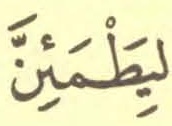 لِيَطْمَئِنَّ